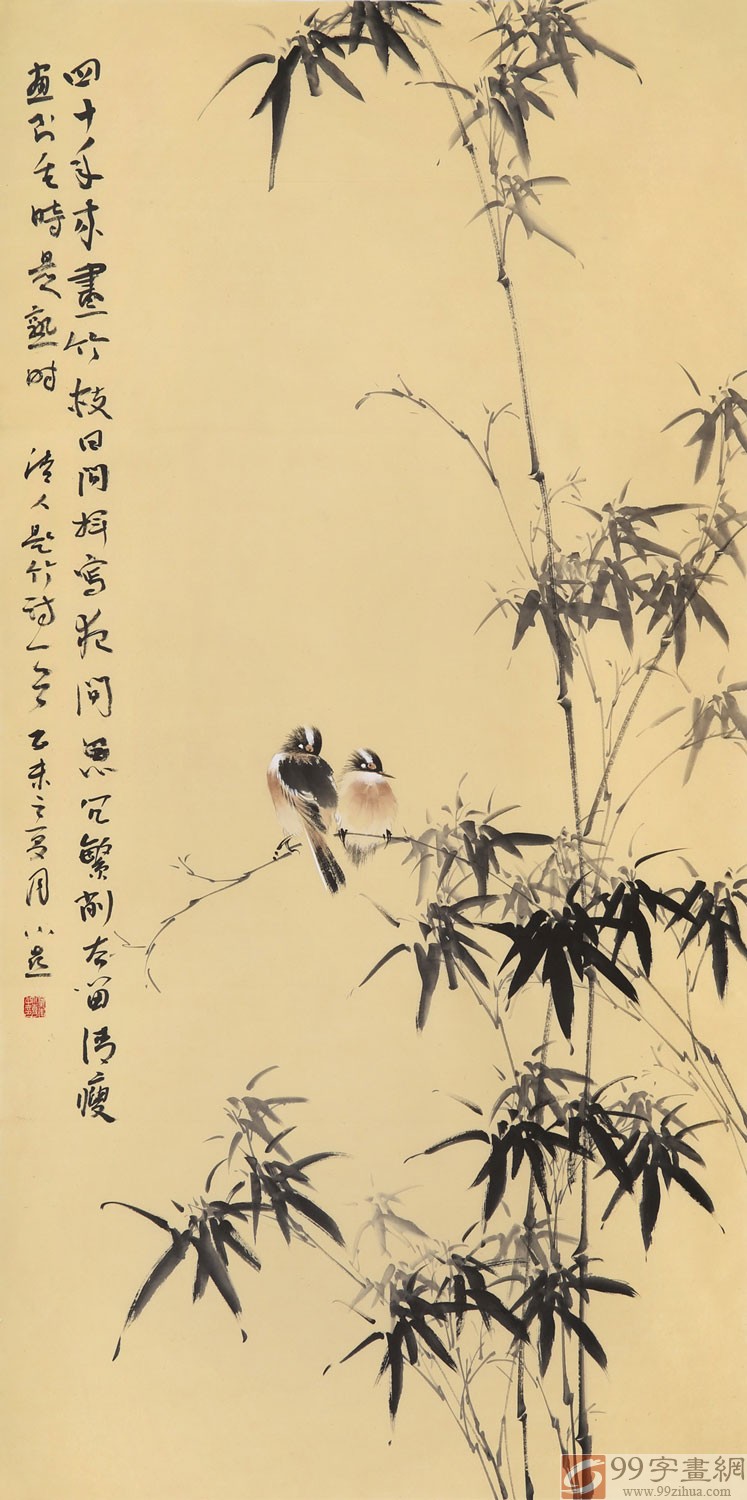 四十年来畫竹枝日间挥写夜间思冗繁削尽留清瘦
画到生時是熟时 清人题竹诗一首 乙未之夏月小
99字畫網
www.99zihua.com